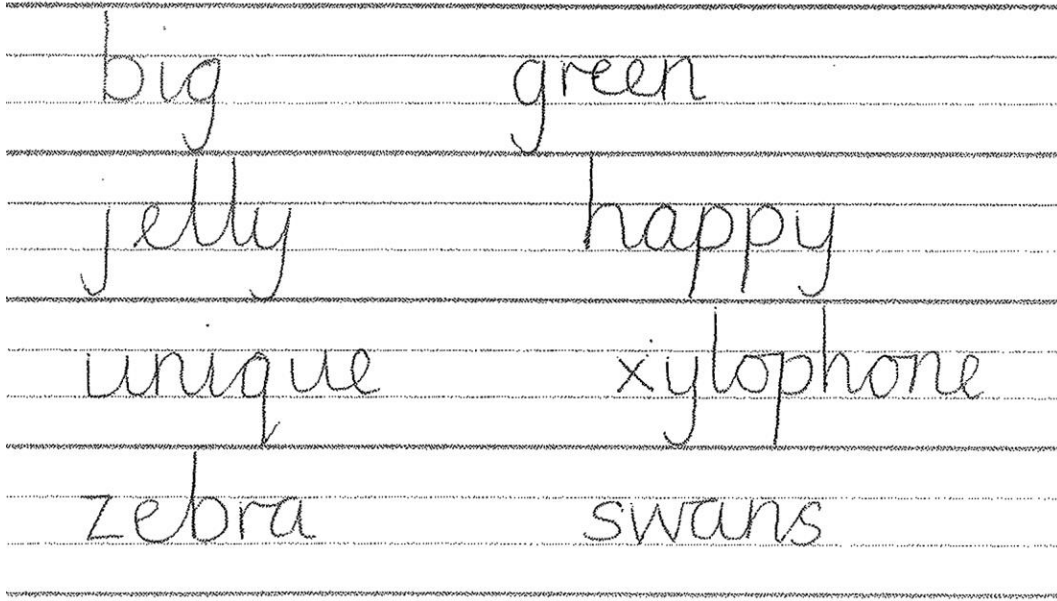 big green
jelly happy
unique xylophone
zebra swans